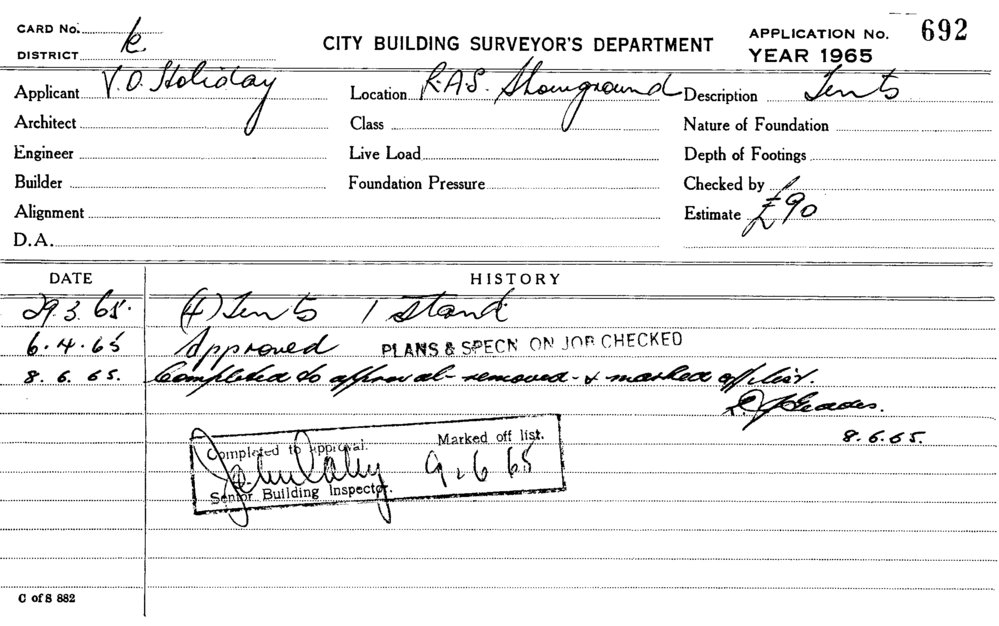 CARD No.
DISTRICT k.
CITY BUILDING SURVEYOR'S DEPARTMENT
APPLICATION No. 692
YEAR 1965
Applicant V.O. Holiday Location R.A.S. Showground Description Tents
Architect Class Nature of Foundation
Engineer Live Load Depth of Footings
Builder Foundation Pressure Checked by
Alignment Estimate £90
D.A.
DATE HISTORY
29.3.65. (4) Tents 1 Stand
6.4.65 Approved PLANS & SPECN ON JOB CHECKED
8.6.65. Completed to approval - removed - & marked off list.
8.6.65.
Completed to approval. Marked off list.
9.6.65
Senior Building Inspector.
C of S 882